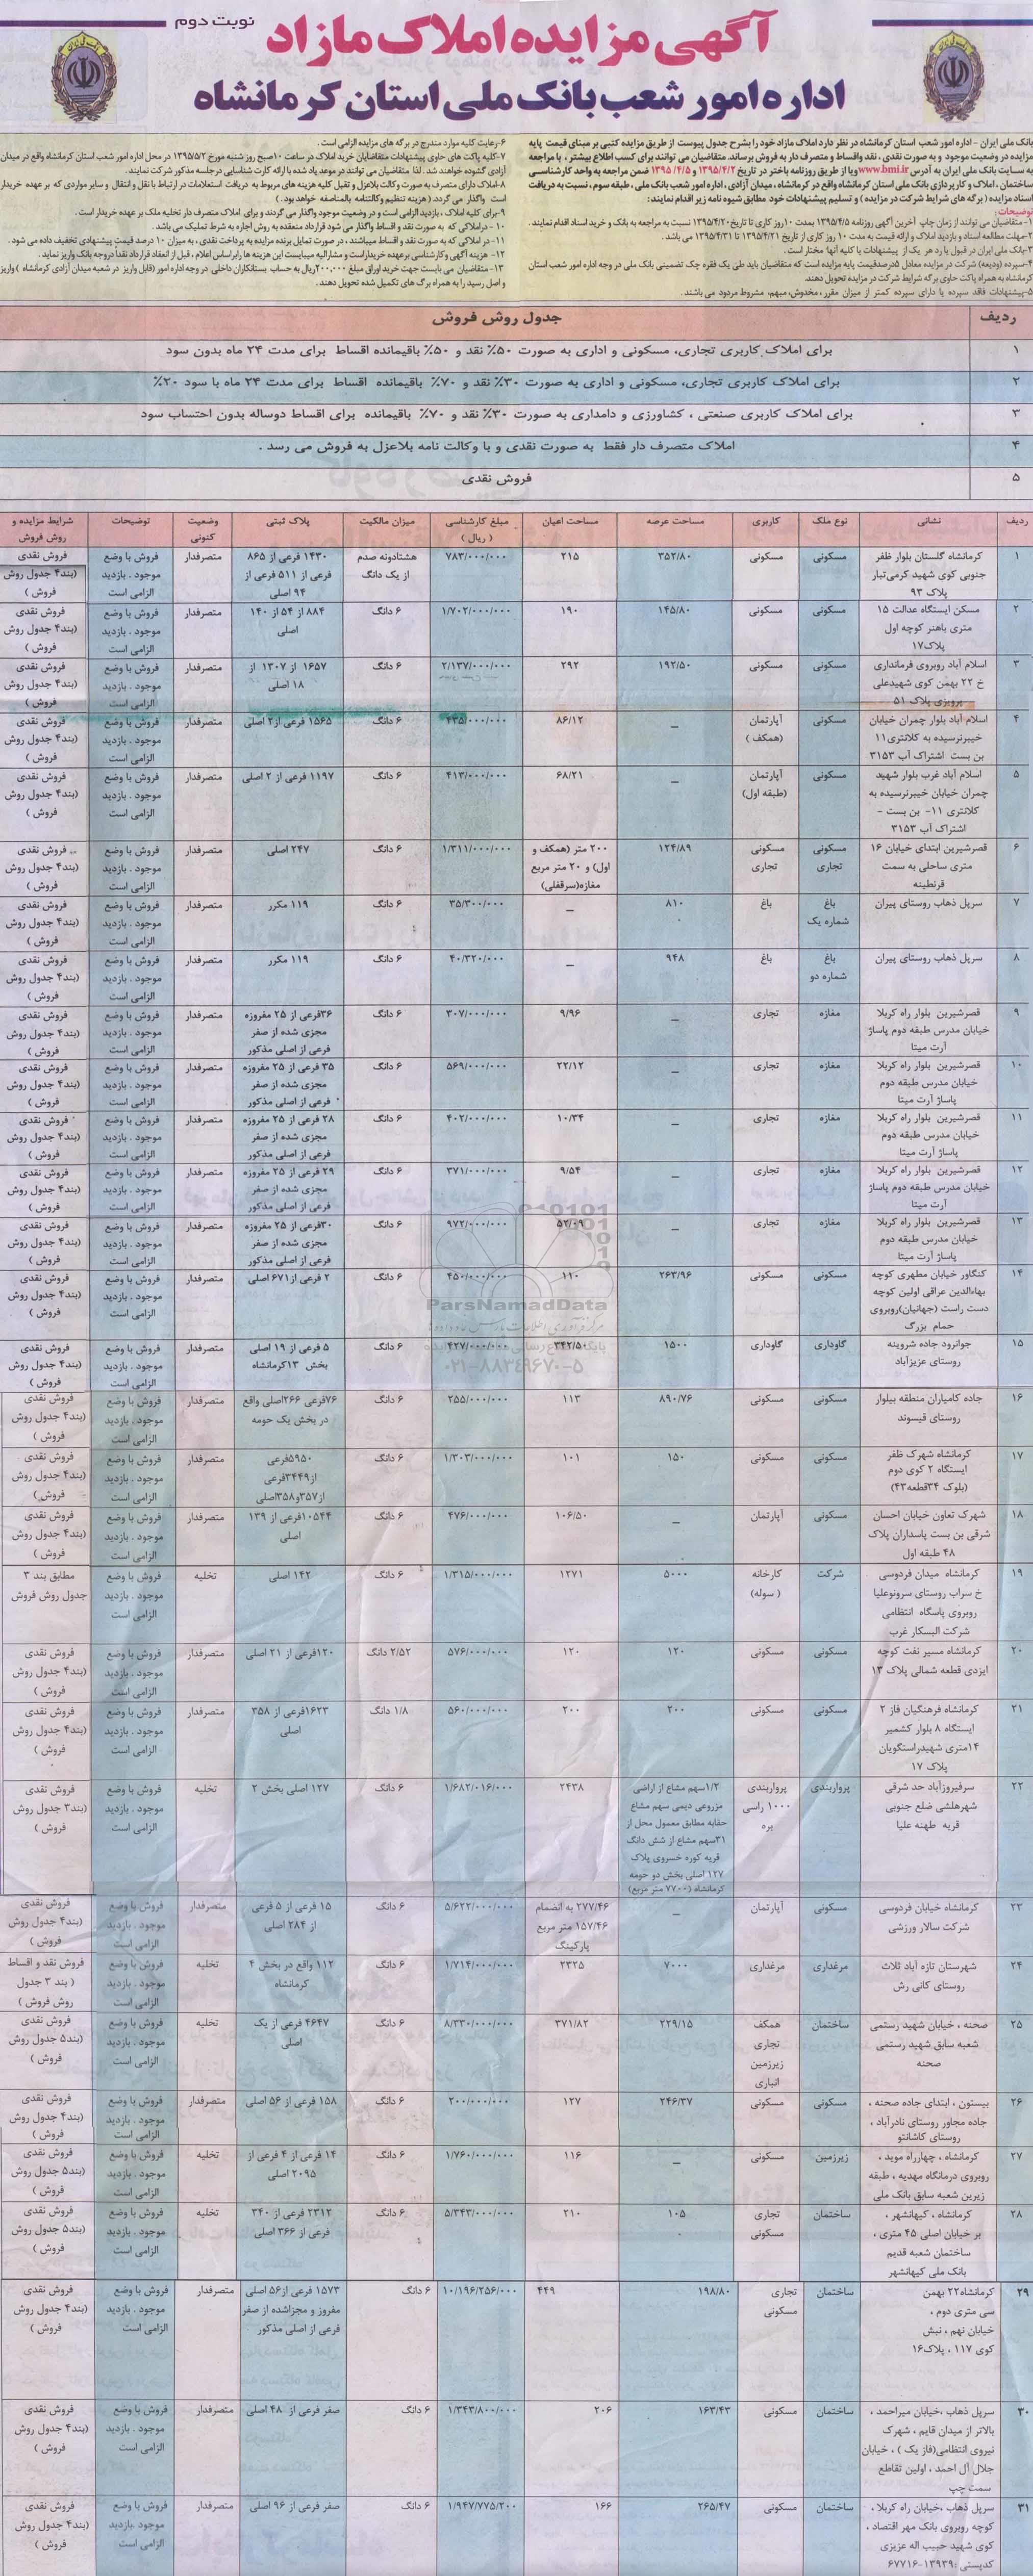 نوبت دوم
آگهی مزایده املاک مازاد
اداره امور شعب بانک ملی استان کرمانشاه
بانک ملی ایران - اداره امور شعب استان کرمانشاه در نظر دارد املاک مازاد خود را بشرح جدول پیوست از طریق مزایده کتبی بر مبنای قیمت پایه
مزایده در وضعیت موجود و به صورت نقدی ، نقد واقساط و متصرف دار به فروش برساند. متقاضیان می توانند برای کسب اطلاع بیشتر ، با مراجعه
به سایت بانک ملی ایران به آدرس www.bmi.ir ویا از طریق روزنامه باختر در تاریخ ۱۳۹۵/۴/۲ و ۱۳۹۵/۴/۵ ضمن مراجعه به واحد کارشناسی
ساختمان ، املاک و کارپردازی بانک ملی استان کرمانشاه واقع در کرمانشاه، میدان آزادی ، اداره امور شعب بانک ملی ، طبقه سوم ، نسبت به دریافت
اسناد مزایده ( برگه های شرایط شرکت در مزایده ) و تسلیم پیشنهادات خود مطابق شیوه نامه زیر اقدام نمایند:
توضیحات:
۱- متقاضیان می توانند از زمان چاپ آخرین آگهی روزنامه ۱۳۹۵/۴/۵ بمدت ۱۰ روز کاری تا تاریخ ۱۳۹۵/۴/۲۰ نسبت به مراجعه به بانک و خرید اسناد اقدام نمایند.
۲-مهلت مطالعه اسناد و بازدید املاک و ارائه قیمت به مدت ۱۰ روز کاری از تاریخ ۱۳۹۵/۴/۲۱ تا ۱۳۹۵/۴/۳۱ می باشد .
۳-بانک ملی ایران در قبول یا رد هر یک از پیشنهادات یا کلیه آنها مختار است .
۴-سپرده (ودیعه) شرکت در مزایده معادل ۵درصدقیمت پایه مزایده است که متقاضیان باید طی یک فقره چک تضمینی بانک ملی در وجه اداره امور شعب استان
کرمانشاه به همراه پاکت حاوی برگه شرایط شرکت در مزایده تحویل دهند.
۵-پیشنهادات فاقد سپرده یا دارای سپرده کمتر از میزان مقرر ، مخدوش، مبهم، مشروط مردود می باشند .
۶-رعایت کلیه موارد مندرج در برگه های مزایده الزامی است .
۷-کلیه پاکت های حاوی پیشنهادات متقاضیان خرید املاک در ساعت ۱۰صبح روز شنبه مورخ ۱۳۹۵/۵/۲ در محل اداره امور شعب استان کرمانشاه واقع در میدان
آزادی گشوده خواهند شد . لذا متقاضیان می توانند در موعد یاد شده با ارائه کارت شناسایی درجلسه مذکور شرکت نمایند .
۸-املاک دارای متصرف به صورت وکالت بلاعزل و تقبل کلیه هزینه های مربوط به دریافت استعلامات در ارتباط با نقل و انتقال و سایر مواردی که بر عهده خریدار
است واگذار می گردد ( هزینه تنظیم وکالتنامه بالمناصفه خواهد بود .)
۹-برای کلیه املاک ، بازدید الزامی است و در وضعیت موجود واگذار می گردند و برای املاک متصرف دار تخلیه ملک بر عهده خریدار است .
۱۰ - دراملاکی که به صورت نقد و اقساط واگذار می شود قرارداد منعقده به روش اجاره به شرط تملیک می باشد .
۱۱- در املاکی که به صورت نقد و اقساط میباشند ، در صورت تمایل برنده مزایده به پرداخت نقدی ، به میزان ۱۰ درصد قیمت پیشنهادی تخفیف داده می شود .
۱۲- هزینه آگهی و کارشناسی برعهده خریداراست و مشارالیه میبایست این هزینه ها رابراساس اعلام ، قبل از انعقاد قرارداد نقداً دروجه بانک واریز نماید.
۱۳- متقاضیان می بایست جهت خرید اوراق مبلغ ۲۰۰,۰۰۰ریال به حساب بستانکاران داخلی در وجه اداره امور (قابل واریز در شعبه میدان آزادی کرمانشاه ) واریز
و اصل رسید را به همراه برگ های تکمیل شده تحویل دهند .
ردیف جدول روش فروش
۱ برای املاک کاربری تجاری، مسکونی و اداری به صورت ۵۰٪ نقد و ۵۰٪ باقیمانده اقساط برای مدت ۲۴ ماه بدون سود
۲ برای املاک کاربری تجاری، مسکونی و اداری به صورت ۳۰٪ نقد و ۷۰٪ باقیمانده اقساط برای مدت ۲۴ ماه با سود ۲۰٪
۳ برای املاک کاربری صنعتی ، کشاورزی و دامداری به صورت ۳۰٪ نقد و ۷۰٪ باقیمانده برای اقساط دوساله بدون احتساب سود
۴ املاک متصرف دار فقط به صورت نقدی و با وکالت نامه بلاعزل به فروش می رسد .
۵ فروش نقدی
ردیف نشانی نوع ملک کاربری مساحت عرصه مساحت اعیان مبلغ کارشناسی ( ریال ) میزان مالکیت پلاک ثبتی وضعیت کنونی توضیحات شرایط مزایده و روش فروش
۱ کرمانشاه گلستان بلوار ظفر جنوبی کوی شهید کرمی‌تبار پلاک ۹۳ مسکونی مسکونی ۳۵۲/۸۰ ۲۱۵ ۷۸۳/۰۰۰/۰۰۰ هشتادونه صدم از یک دانگ ۱۴۳۰ فرعی از ۸۶۵ فرعی از ۵۱۱ فرعی از ۹۴ اصلی متصرفدار فروش با وضع موجود . بازدید الزامی است فروش نقدی (بند۴ جدول روش فروش )
۲ مسکن ایستگاه عدالت ۱۵ متری باهنر کوچه اول پلاک۱۷ مسکونی مسکونی ۱۴۵/۸۰ ۱۹۰ ۱/۷۰۲/۰۰۰/۰۰۰ ۶ دانگ ۸۸۴ از ۵۴ از ۱۴۰ اصلی متصرفدار فروش با وضع موجود . بازدید الزامی است فروش نقدی (بند۴ جدول روش فروش )
۳ اسلام آباد روبروی فرمانداری خ ۲۲ بهمن کوی شهیدعلی پرویزی پلاک ۵۱ مسکونی مسکونی ۱۹۲/۵۰ ۲۹۲ ۲/۱۳۷/۰۰۰/۰۰۰ ۶ دانگ ۱۶۵۷ از ۱۳۰۷ از ۱۸ اصلی متصرفدار فروش با وضع موجود . بازدید الزامی است فروش نقدی (بند۴ جدول روش فروش )
۴ اسلام آباد بلوار چمران خیابان خیبرنرسیده به کلانتری۱۱ بن بست اشتراک آب ۳۱۵۳ مسکونی آپارتمان (همکف ) _ ۸۶/۱۲ ۴۳۵/۰۰۰/۰۰۰ ۶ دانگ ۱۵۶۵ فرعی از۲ اصلی متصرفدار فروش با وضع موجود . بازدید الزامی است فروش نقدی (بند۴ جدول روش فروش )
۵ اسلام آباد غرب بلوار شهید چمران خیابان خیبرنرسیده به کلانتری ۱۱- بن بست - اشتراک آب ۳۱۵۳ مسکونی آپارتمان (طبقه اول) _ ۶۸/۲۱ ۴۱۳/۰۰۰/۰۰۰ ۶ دانگ ۱۱۹۷ فرعی از ۲ اصلی متصرفدار فروش با وضع موجود . بازدید الزامی است فروش نقدی (بند۴ جدول روش فروش )
۶ قصرشیرین ابتدای خیابان ۱۶ متری ساحلی به سمت قرنطینه مسکونی تجاری مسکونی تجاری ۱۲۴/۸۹ ۲۰۰ متر (همکف و اول) و ۲۰ متر مربع مغازه(سرقفلی) ۱/۳۱۱/۰۰۰/۰۰۰ ۶ دانگ ۲۴۷ اصلی متصرفدار فروش با وضع موجود . بازدید الزامی است فروش نقدی (بند۴ جدول روش فروش )
۷ سرپل ذهاب روستای پیران باغ شماره یک باغ ۸۱۰ _ ۳۵/۳۰۰/۰۰۰ ۶ دانگ ۱۱۹ مکرر متصرفدار فروش با وضع موجود . بازدید الزامی است فروش نقدی (بند۴ جدول روش فروش )
۸ سرپل ذهاب روستای پیران باغ شماره دو باغ ۹۴۸ _ ۴۰/۳۲۰/۰۰۰ ۶ دانگ ۱۱۹ مکرر متصرفدار فروش با وضع موجود . بازدید الزامی است فروش نقدی (بند۴ جدول روش فروش )
۹ قصرشیرین بلوار راه کربلا خیابان مدرس طبقه دوم پاساژ آرت میتا مغازه تجاری _ ۹/۹۶ ۳۰۷/۰۰۰/۰۰۰ ۶ دانگ ۳۶فرعی از ۲۵ مفروزه مجزی شده از صفر فرعی از اصلی مذکور متصرفدار فروش با وضع موجود . بازدید الزامی است فروش نقدی (بند۴ جدول روش فروش )
۱۰ قصرشیرین بلوار راه کربلا خیابان مدرس طبقه دوم پاساژ آرت میتا مغازه تجاری _ ۲۲/۱۲ ۵۶۹/۰۰۰/۰۰۰ ۶ دانگ ۳۵ فرعی از ۲۵ مفروزه مجزی شده از صفر فرعی از اصلی مذکور متصرفدار فروش با وضع موجود . بازدید الزامی است فروش نقدی (بند۴ جدول روش فروش )
۱۱ قصرشیرین بلوار راه کربلا خیابان مدرس طبقه دوم پاساژ آرت میتا مغازه تجاری _ ۱۰/۳۴ ۴۰۲/۰۰۰/۰۰۰ ۶ دانگ ۲۸ فرعی از ۲۵ مفروزه مجزی شده از صفر فرعی از اصلی مذکور متصرفدار فروش با وضع موجود . بازدید الزامی است فروش نقدی (بند۴ جدول روش فروش )
۱۲ قصرشیرین بلوار راه کربلا خیابان مدرس طبقه دوم پاساژ آرت میتا مغازه تجاری _ ۹/۵۴ ۳۷۱/۰۰۰/۰۰۰ ۶ دانگ ۲۹ فرعی از ۲۵ مفروزه مجزی شده از صفر فرعی از اصلی مذکور متصرفدار فروش با وضع موجود . بازدید الزامی است فروش نقدی (بند۴ جدول روش فروش )
۱۳ قصرشیرین بلوار راه کربلا خیابان مدرس طبقه دوم پاساژ آرت میتا مغازه تجاری _ ۵۲/۰۹ ۹۷۲/۰۰۰/۰۰۰ ۶ دانگ ۳۰فرعی از ۲۵ مفروزه مجزی شده از صفر فرعی از اصلی مذکور متصرفدار فروش با وضع موجود . بازدید الزامی است فروش نقدی (بند۴ جدول روش فروش )
۱۴ کنگاور خیابان مطهری کوچه بهاءالدین عراقی اولین کوچه دست راست (جهانیان)روبروی حمام بزرگ مسکونی مسکونی ۲۶۳/۹۶ ۱۱۰ ۴۵۰/۰۰۰/۰۰۰ ۶ دانگ ۲ فرعی از۶۷۱ اصلی متصرفدار فروش با وضع موجود . بازدید الزامی است فروش نقدی (بند۴ جدول روش فروش )
ParsNamadData
۰۲۱-۸۸۳۴۹۶۷۰-۵
۱۵ جوانرود جاده شروینه روستای عزیزآباد گاوداری گاوداری ۱۵۰۰ ۳۴۲/۵۰ ۴۲۷/۰۰۰/۰۰۰ ۶ دانگ ۵ فرعی از ۱۹ اصلی بخش ۱۳کرمانشاه متصرفدار فروش با وضع موجود . بازدید الزامی است فروش نقدی (بند۴ جدول روش فروش )
۱۶ جاده کامیاران منطقه بیلوار روستای قیسوند مسکونی مسکونی ۸۹۰/۷۶ ۱۱۳ ۲۵۵/۰۰۰/۰۰۰ ۶ دانگ ۷۶فرعی ۲۶۶اصلی واقع در بخش یک حومه متصرفدار فروش با وضع موجود . بازدید الزامی است فروش نقدی (بند۴ جدول روش فروش )
۱۷ کرمانشاه شهرک ظفر ایستگاه ۲ کوی دوم (بلوک ۳۴قطعه۴۳) مسکونی مسکونی ۱۵۰ ۱۰۱ ۱/۳۰۳/۰۰۰/۰۰۰ ۶ دانگ ۵۹۵۰فرعی از۳۴۴۹فرعی از۳۵۷و۳۵۸اصلی متصرفدار فروش با وضع موجود . بازدید الزامی است فروش نقدی (بند۴ جدول روش فروش )
۱۸ شهرک تعاون خیابان احسان شرقی بن بست پاسداران پلاک ۴۸ طبقه اول مسکونی آپارتمان _ ۱۰۶/۵۰ ۴۷۶/۰۰۰/۰۰۰ ۶ دانگ ۱۰۵۴۴فرعی از ۱۳۹ اصلی متصرفدار فروش با وضع موجود . بازدید الزامی است فروش نقدی (بند۴ جدول روش فروش )
۱۹ کرمانشاه میدان فردوسی خ سراب روستای سرونوعلیا روبروی پاسگاه انتظامی شرکت البسکار غرب شرکت کارخانه ( سوله) ۵۰۰۰ ۱۲۷۱ ۱/۳۱۵/۰۰۰/۰۰۰ ۶ دانگ ۱۴۲ اصلی تخلیه فروش با وضع موجود . بازدید الزامی است مطابق بند ۳ جدول روش فروش
۲۰ کرمانشاه مسیر نفت کوچه ایزدی قطعه شمالی پلاک ۱۳ مسکونی مسکونی ۱۲۰ ۱۲۰ ۵۷۶/۰۰۰/۰۰۰ ۲/۵۲ دانگ ۱۲۰فرعی از ۲۱ اصلی متصرفدار فروش با وضع موجود . بازدید الزامی است فروش نقدی (بند۴ جدول روش فروش )
۲۱ کرمانشاه فرهنگیان فاز ۲ ایستگاه ۸ بلوار کشمیر ۱۴متری شهیدراستگویان پلاک ۱۷ مسکونی مسکونی ۲۰۰ ۲۰۰ ۵۶۰/۰۰۰/۰۰۰ ۱/۸ دانگ ۱۶۲۳فرعی از ۳۵۸ اصلی متصرفدار فروش با وضع موجود . بازدید الزامی است فروش نقدی (بند۴ جدول روش فروش )
۲۲ سرفیروزآباد حد شرقی شهرهلشی ضلع جنوبی قریه طهنه علیا پرواربندی پرواربندی ۱۰۰۰ راسی بره ۱/۲سهم مشاع از اراضی مزروعی دیمی سهم مشاع حقابه مطابق معمول محل از ۳۱سهم مشاع از شش دانگ قریه کوره خسروی پلاک ۱۲۷ اصلی بخش دو حومه کرمانشاه (۷۷۰۰ متر مربع) ۲۴۳۸ ۱/۶۸۲/۰۱۶/۰۰۰ ۶ دانگ ۱۲۷ اصلی بخش ۲ تخلیه فروش با وضع موجود . بازدید الزامی است فروش نقدی (بند۳ جدول روش فروش )
۲۳ کرمانشاه خیابان فردوسی شرکت سالار ورزشی مسکونی آپارتمان _ ۲۷۷/۴۶ به انضمام ۱۵۷/۴۶ متر مربع پارکینگ ۵/۶۲۲/۰۰۰/۰۰۰ ۶ دانگ ۱۵ فرعی از ۵ فرعی از ۲۸۴ اصلی متصرفدار فروش با وضع موجود . بازدید الزامی است فروش نقدی (بند۴ جدول روش فروش )
۲۴ شهرستان تازه آباد ثلاث روستای کانی رش مرغداری مرغداری ۷۰۰۰ ۲۳۲۵ ۱/۷۱۴/۰۰۰/۰۰۰ ۶ دانگ ۱۱۲ واقع در بخش ۴ کرمانشاه تخلیه فروش با وضع موجود . بازدید الزامی است فروش نقد و اقساط ( بند ۳ جدول روش فروش )
۲۵ صحنه ، خیابان شهید رستمی شعبه سابق شهید رستمی صحنه ساختمان همکف تجاری زیرزمین انباری ۲۲۹/۱۵ ۳۷۱/۸۲ ۸/۳۳۰/۰۰۰/۰۰۰ ۶ دانگ ۴۶۴۷ فرعی از یک اصلی تخلیه فروش با وضع موجود . بازدید الزامی است فروش نقدی (بند۵ جدول روش فروش )
۲۶ بیستون ، ابتدای جاده صحنه ، جاده مجاور روستای نادرآباد ، روستای کاشانتو مسکونی مسکونی ۲۴۶/۳۷ ۱۲۷ ۲۰۰/۰۰۰/۰۰۰ ۶ دانگ ۱۵۸ فرعی از ۵۶ اصلی متصرفدار فروش با وضع موجود . بازدید الزامی است فروش نقدی (بند۴ جدول روش فروش )
۲۷ کرمانشاه ، چهارراه موید ، روبروی درمانگاه مهدیه ، طبقه زیرین شعبه سابق بانک ملی زیرزمین مسکونی _ ۱۱۶ ۱/۷۶۰/۰۰۰/۰۰۰ ۶ دانگ ۱۴ فرعی از ۴ فرعی از ۲۰۹۵ اصلی تخلیه فروش با وضع موجود . بازدید الزامی است فروش نقدی (بند۵ جدول روش فروش )
۲۸ کرمانشاه ، کیهانشهر ، بر خیابان اصلی ۴۵ متری ، ساختمان شعبه قدیم بانک ملی کیهانشهر ساختمان تجاری مسکونی ۱۰۵ ۲۱۰ ۵/۳۴۳/۰۰۰/۰۰۰ ۶ دانگ ۲۳۱۲ فرعی از ۳۴۰ فرعی از ۳۶۶ اصلی تخلیه فروش با وضع موجود . بازدید الزامی است فروش نقدی (بند۵ جدول روش فروش )
۲۹ کرمانشاه۲۲ بهمن سی متری دوم ، خیابان نهم ، نبش کوی ۱۱۷ ، پلاک۱۶ ساختمان تجاری مسکونی ۱۹۸/۸۰ ۴۴۹ ۱۰/۱۹۶/۲۵۶/۰۰۰ ۶ دانگ ۱۵۷۳ فرعی از۵۶ اصلی مفروز و مجزاشده از صفر فرعی از اصلی مذکور متصرفدار فروش با وضع موجود . بازدید الزامی است فروش نقدی (بند۴ جدول روش فروش )
۳۰ سرپل ذهاب ،خیابان میراحمد ، بالاتر از میدان قایم ، شهرک نیروی انتظامی(فاز یک ) ، خیابان جلال آل احمد ، اولین تقاطع سمت چپ ساختمان مسکونی ۱۶۳/۴۳ ۲۰۶ ۱/۳۴۳/۸۰۰/۰۰۰ ۶ دانگ صفر فرعی از ۴۸ اصلی متصرفدار فروش با وضع موجود . بازدید الزامی است فروش نقدی (بند۴ جدول روش فروش )
۳۱ سرپل ذهاب ،خیابان راه کربلا ، کوچه روبروی بانک مهر اقتصاد ، کوی شهید حبیب اله عزیزی کدپستی :۱۳۹۳۹-۶۷۷۱۶ ساختمان مسکونی ۲۶۵/۴۷ ۱۶۶ ۱/۹۴۷/۷۷۵/۲۰۰ ۶ دانگ صفر فرعی از ۹۶ اصلی متصرفدار فروش با وضع موجود .بازدید الزامی است فروش نقدی (بند۴ جدول روش فروش )